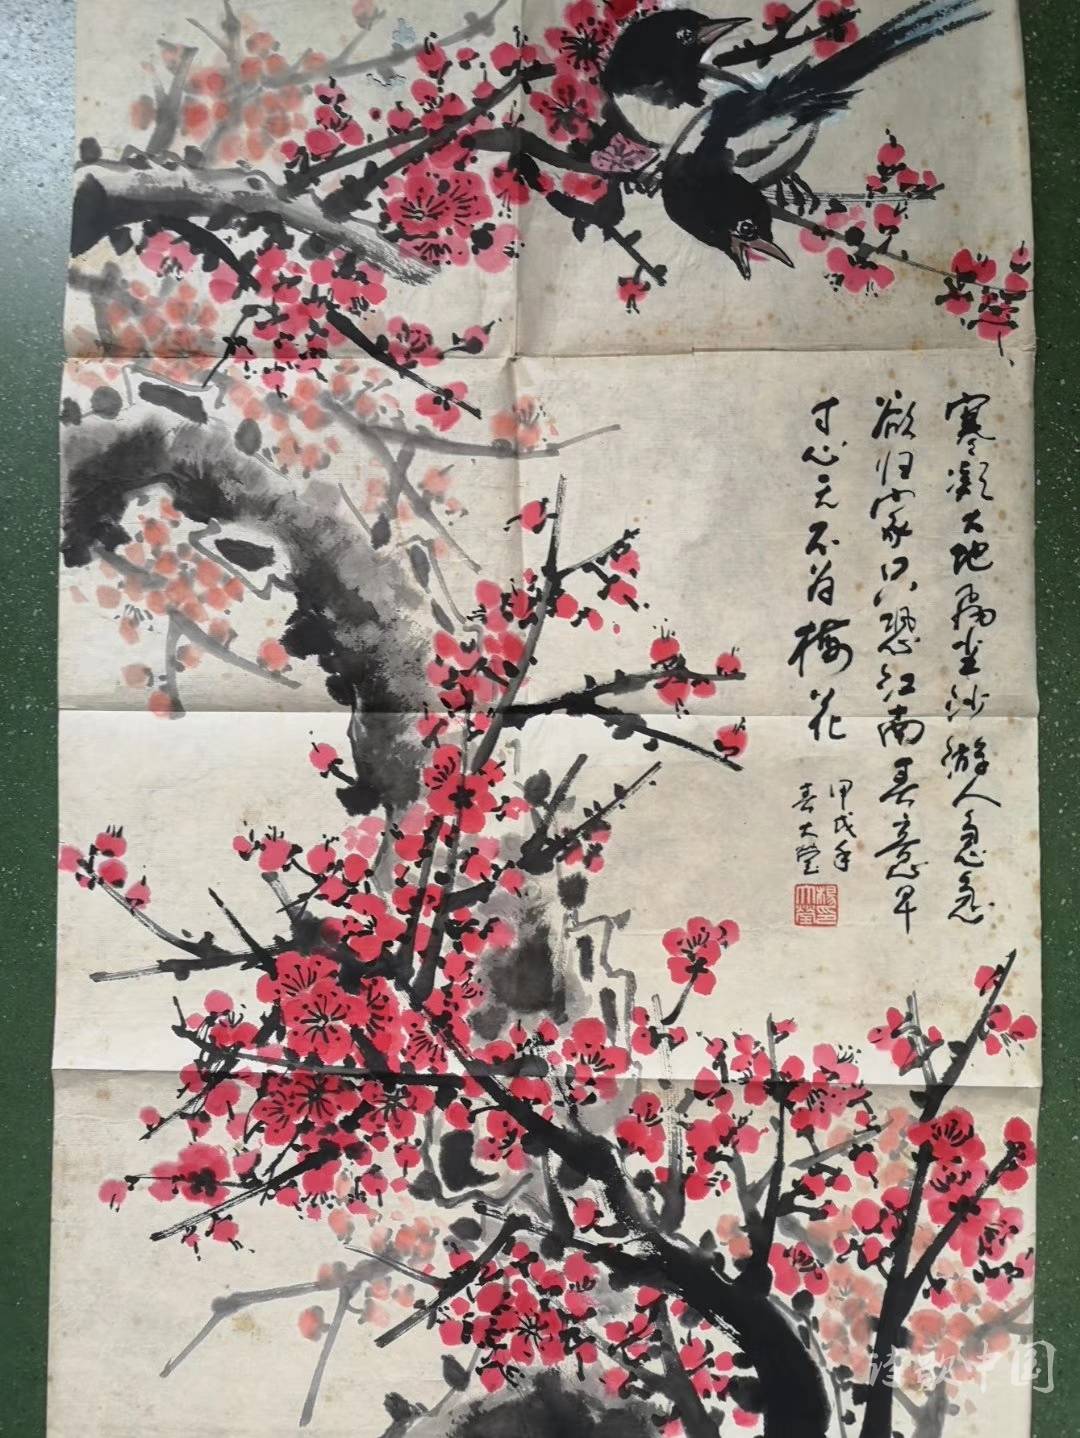 寒凝大地雨尘沙游人急急
欲归家只恐江南春意早
寸心无不为梅花
甲戌年
春大莹
杨大莹印
诗歌中国